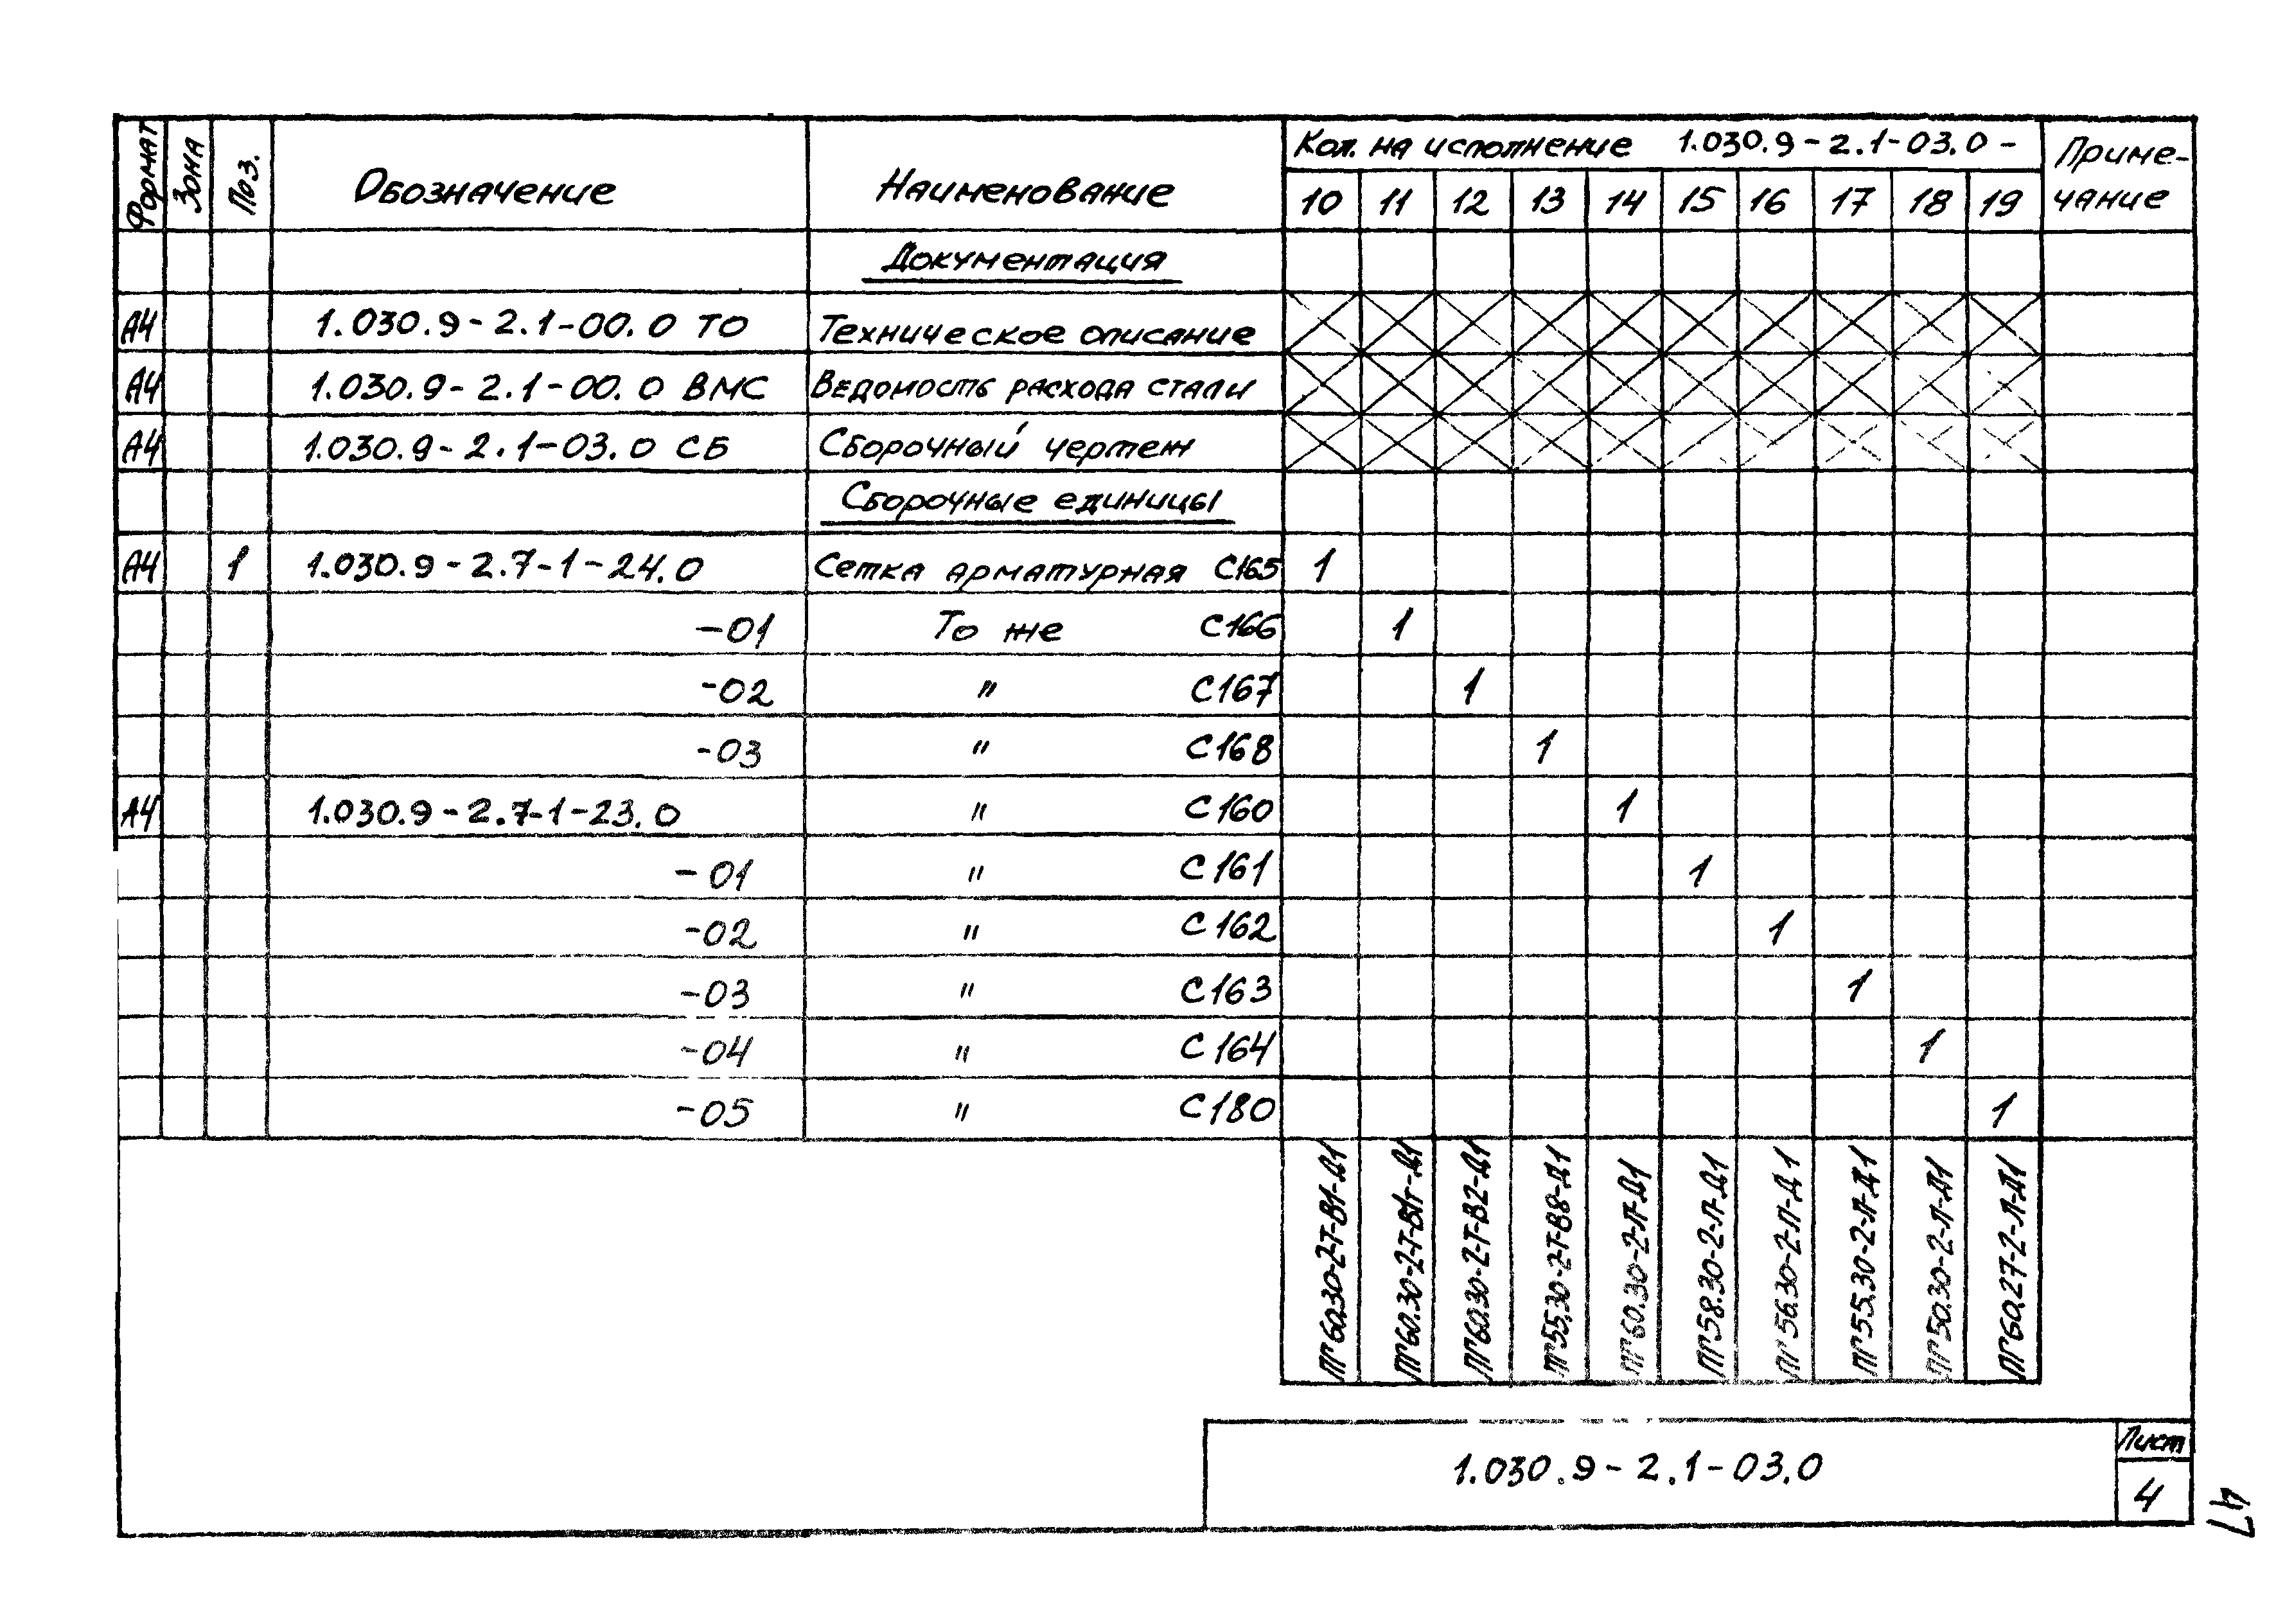 Формат Зона Поз. Обозначение Наименование Кол. на исполнение 1.030.9-2.1-03.0- Приме-
чание
10 11 12 13 14 15 16 17 18 19
Документация
А4 1.030.9-2.1-00.0 ТО Техническое описание
А4 1.030.9-2.1-00.0 ВМС Ведомость расхода стали
А4 1.030.9-2.1-03.0 СБ Сборочный чертеж
Сборочные единицы
А4 1 1.030.9-2.7-1-24.0 Сетка арматурная С165 1
-01 То же С166 1
-02 " С167 1
-03 " С168 1
А4 1.030.9-2.7-1-23.0 " С160 1
-01 " С161 1
-02 " С162 1
-03 " С163 1
-04 " С164 1
-05 " С180 1
ПГ60.30-2-Т-В1-Д1
ПГ60.30-2-Т-В1г-Д1
ПГ60.30-2-Т-В2-Д1
ПГ55.30-2-Т-В8-Д1
ПГ60.30-2-Л-Д1
ПГ58.30-2-Л-Д1
ПГ56.30-2-Л-Д1
ПГ55.30-2-Л-Д1
ПГ50.30-2-Л-Д1
ПГ60.27-2-Л-Д1
1.030.9-2.1-03.0
Лист
4
47